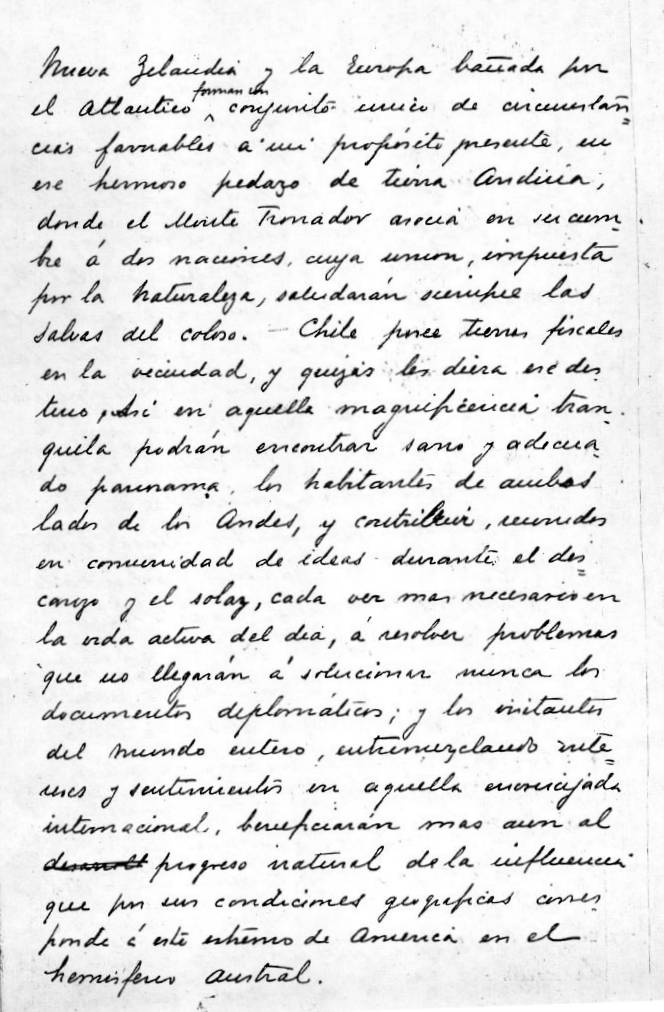 Nueva Zelandia y la Europa bañada por
el Atlantico forman un conjunto unico de circunstan=
cias favorables a mi propósito presente, en
ese hermoso pedazo de tierra Andina,
donde el Monte Tronador asocia en su cum-
bre á dos naciones, cuya union, impuesta
por la naturaleza, saludarán siempre las
salvas del coloso. — Chile posee tierras fiscales
en la vecindad, y quizás les diera ese des
tino. Asi en aquella magnificencia tran-
quila podrán encontrar sano y adecua-
do panorama, los habitantes de ambos
lados de los Andes, y contribuir, reunidos
en comunidad de ideas durante el des=
canso y el solaz, cada vez mas necesario en
la vida activa del dia, á resolver problemas
que no llegarán á solucionar nunca los
documentos diplomáticos; y los visitantes
del mundo entero, entremezclando inte=
reses y sentimientos en aquella encrucijada
internacional, beneficiarán mas aun al
progreso natural de la influencia
que por sus condiciones geograficas corres
ponde á este extremo de America en el
hemisferio austral.